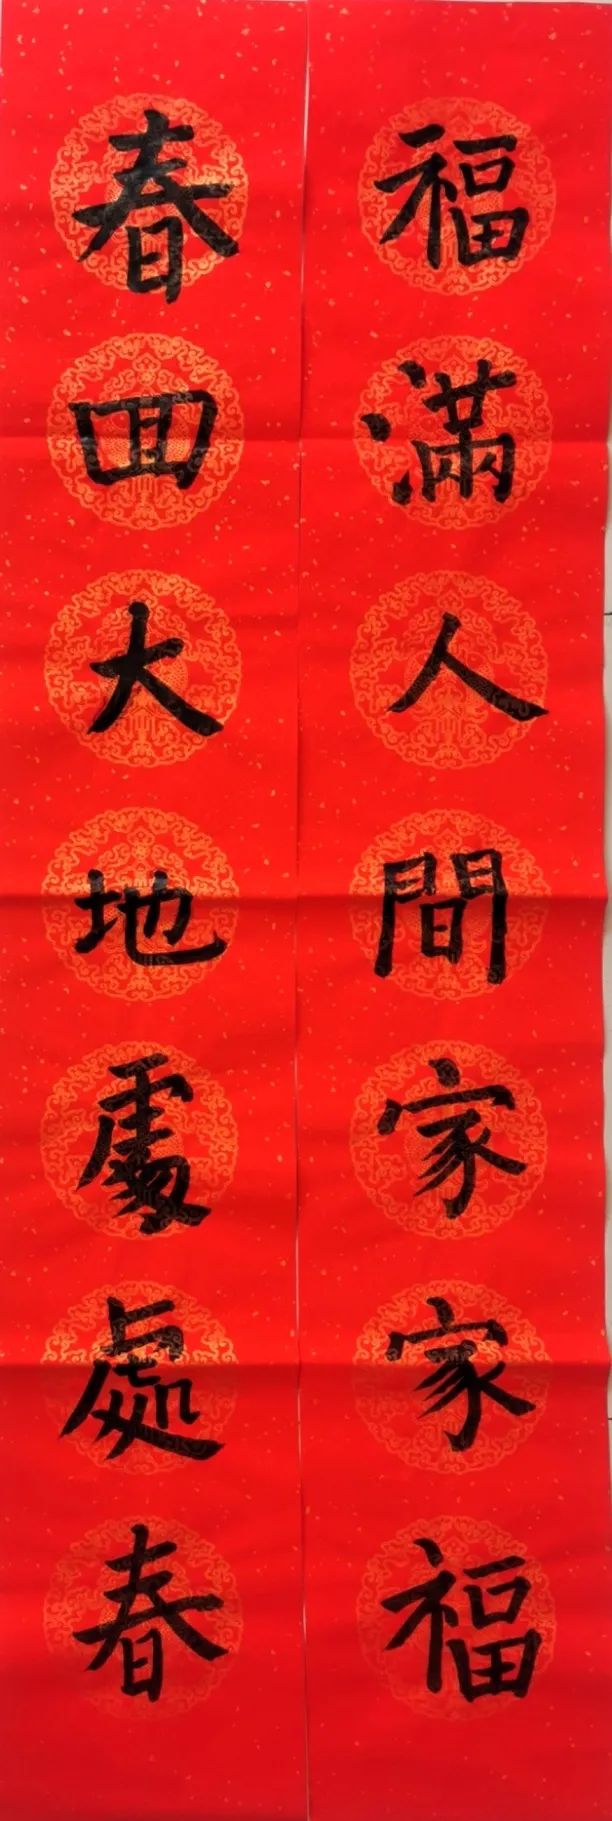 福滿人間家家福
春回大地處處春